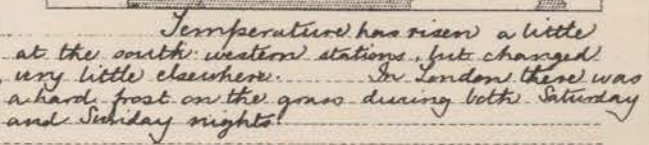 Temperature has risen a little
at the south western stations, but changed
very little elsewhere. In London there was
a hard frost on the grass during both Saturday
and Sunday nights.